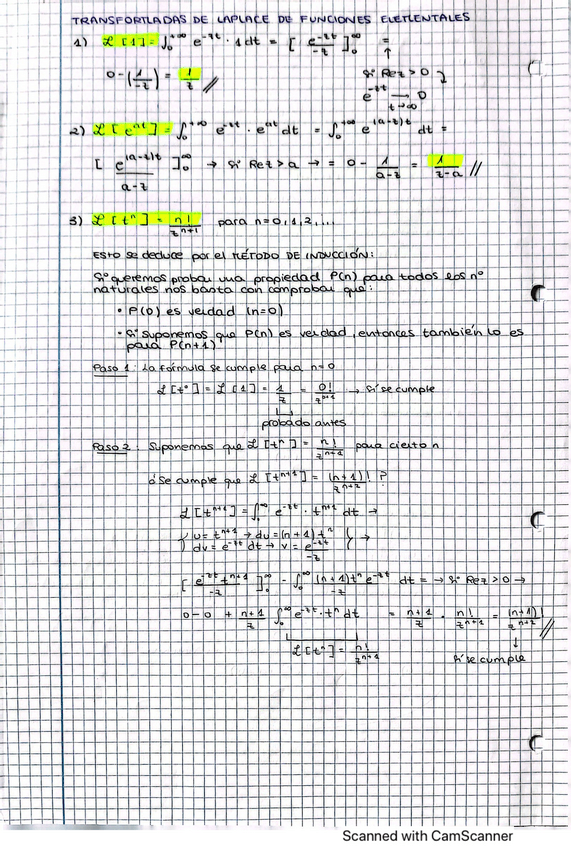 TRANSFORMADAS DE LAPLACE DE FUNCIONES ELEMENTALES
1) ℒ[1] = ∫₀^{+∞} e^{-zt} · 1 dt = [e^{-zt}/-z]₀^∞ =
0 - (1/-z) = 1/z //
↑
Si Re z > 0
e^{-zt} → 0
t→∞
2) ℒ[e^{at}] = ∫₀^{+∞} e^{-zt} · e^{at} dt = ∫₀^{+∞} e^{(a-z)t} dt =
[e^{(a-z)t}/a-z]₀^∞ → Si Re z > a → = 0 - 1/a-z = 1/z-a //
3) ℒ[tⁿ] = n!/z^{n+1} para n=0,1,2,...
Esto se deduce por el MÉTODO DE INDUCCIÓN:
Si queremos probar una propiedad P(n) para todos los nº
naturales nos basta con comprobar que:
• P(0) es verdad (n=0)
• Si suponemos que P(n) es verdad, entonces también lo es
para P(n+1)
Paso 1: La fórmula se cumple para n=0
ℒ[t⁰] = ℒ[1] = 1/z = 0!/z^{0+1} → Sí se cumple
probado antes
Paso 2: Suponemos que ℒ[tⁿ] = n!/z^{n+1} para cierto n
¿Se cumple que ℒ[t^{n+1}] = (n+1)!/z^{n+2} ?
ℒ[t^{n+1}] = ∫₀^∞ e^{-zt} · t^{n+1} dt →
{ u = t^{n+1} → du = (n+1) tⁿ
dv = e^{-zt} dt → v = e^{-zt}/-z } →
[e^{-zt} t^{n+1}/-z]₀^∞ - ∫₀^∞ (n+1) tⁿ e^{-zt}/-z dt = → Si Re z > 0 →
0 - 0 + n+1/z ∫₀^∞ e^{-zt} · tⁿ dt = n+1/z · n!/z^{n+1} = (n+1)!/z^{n+2} //
ℒ[tⁿ] = n!/z^{n+1}
↓
Sí se cumple
Scanned with CamScanner